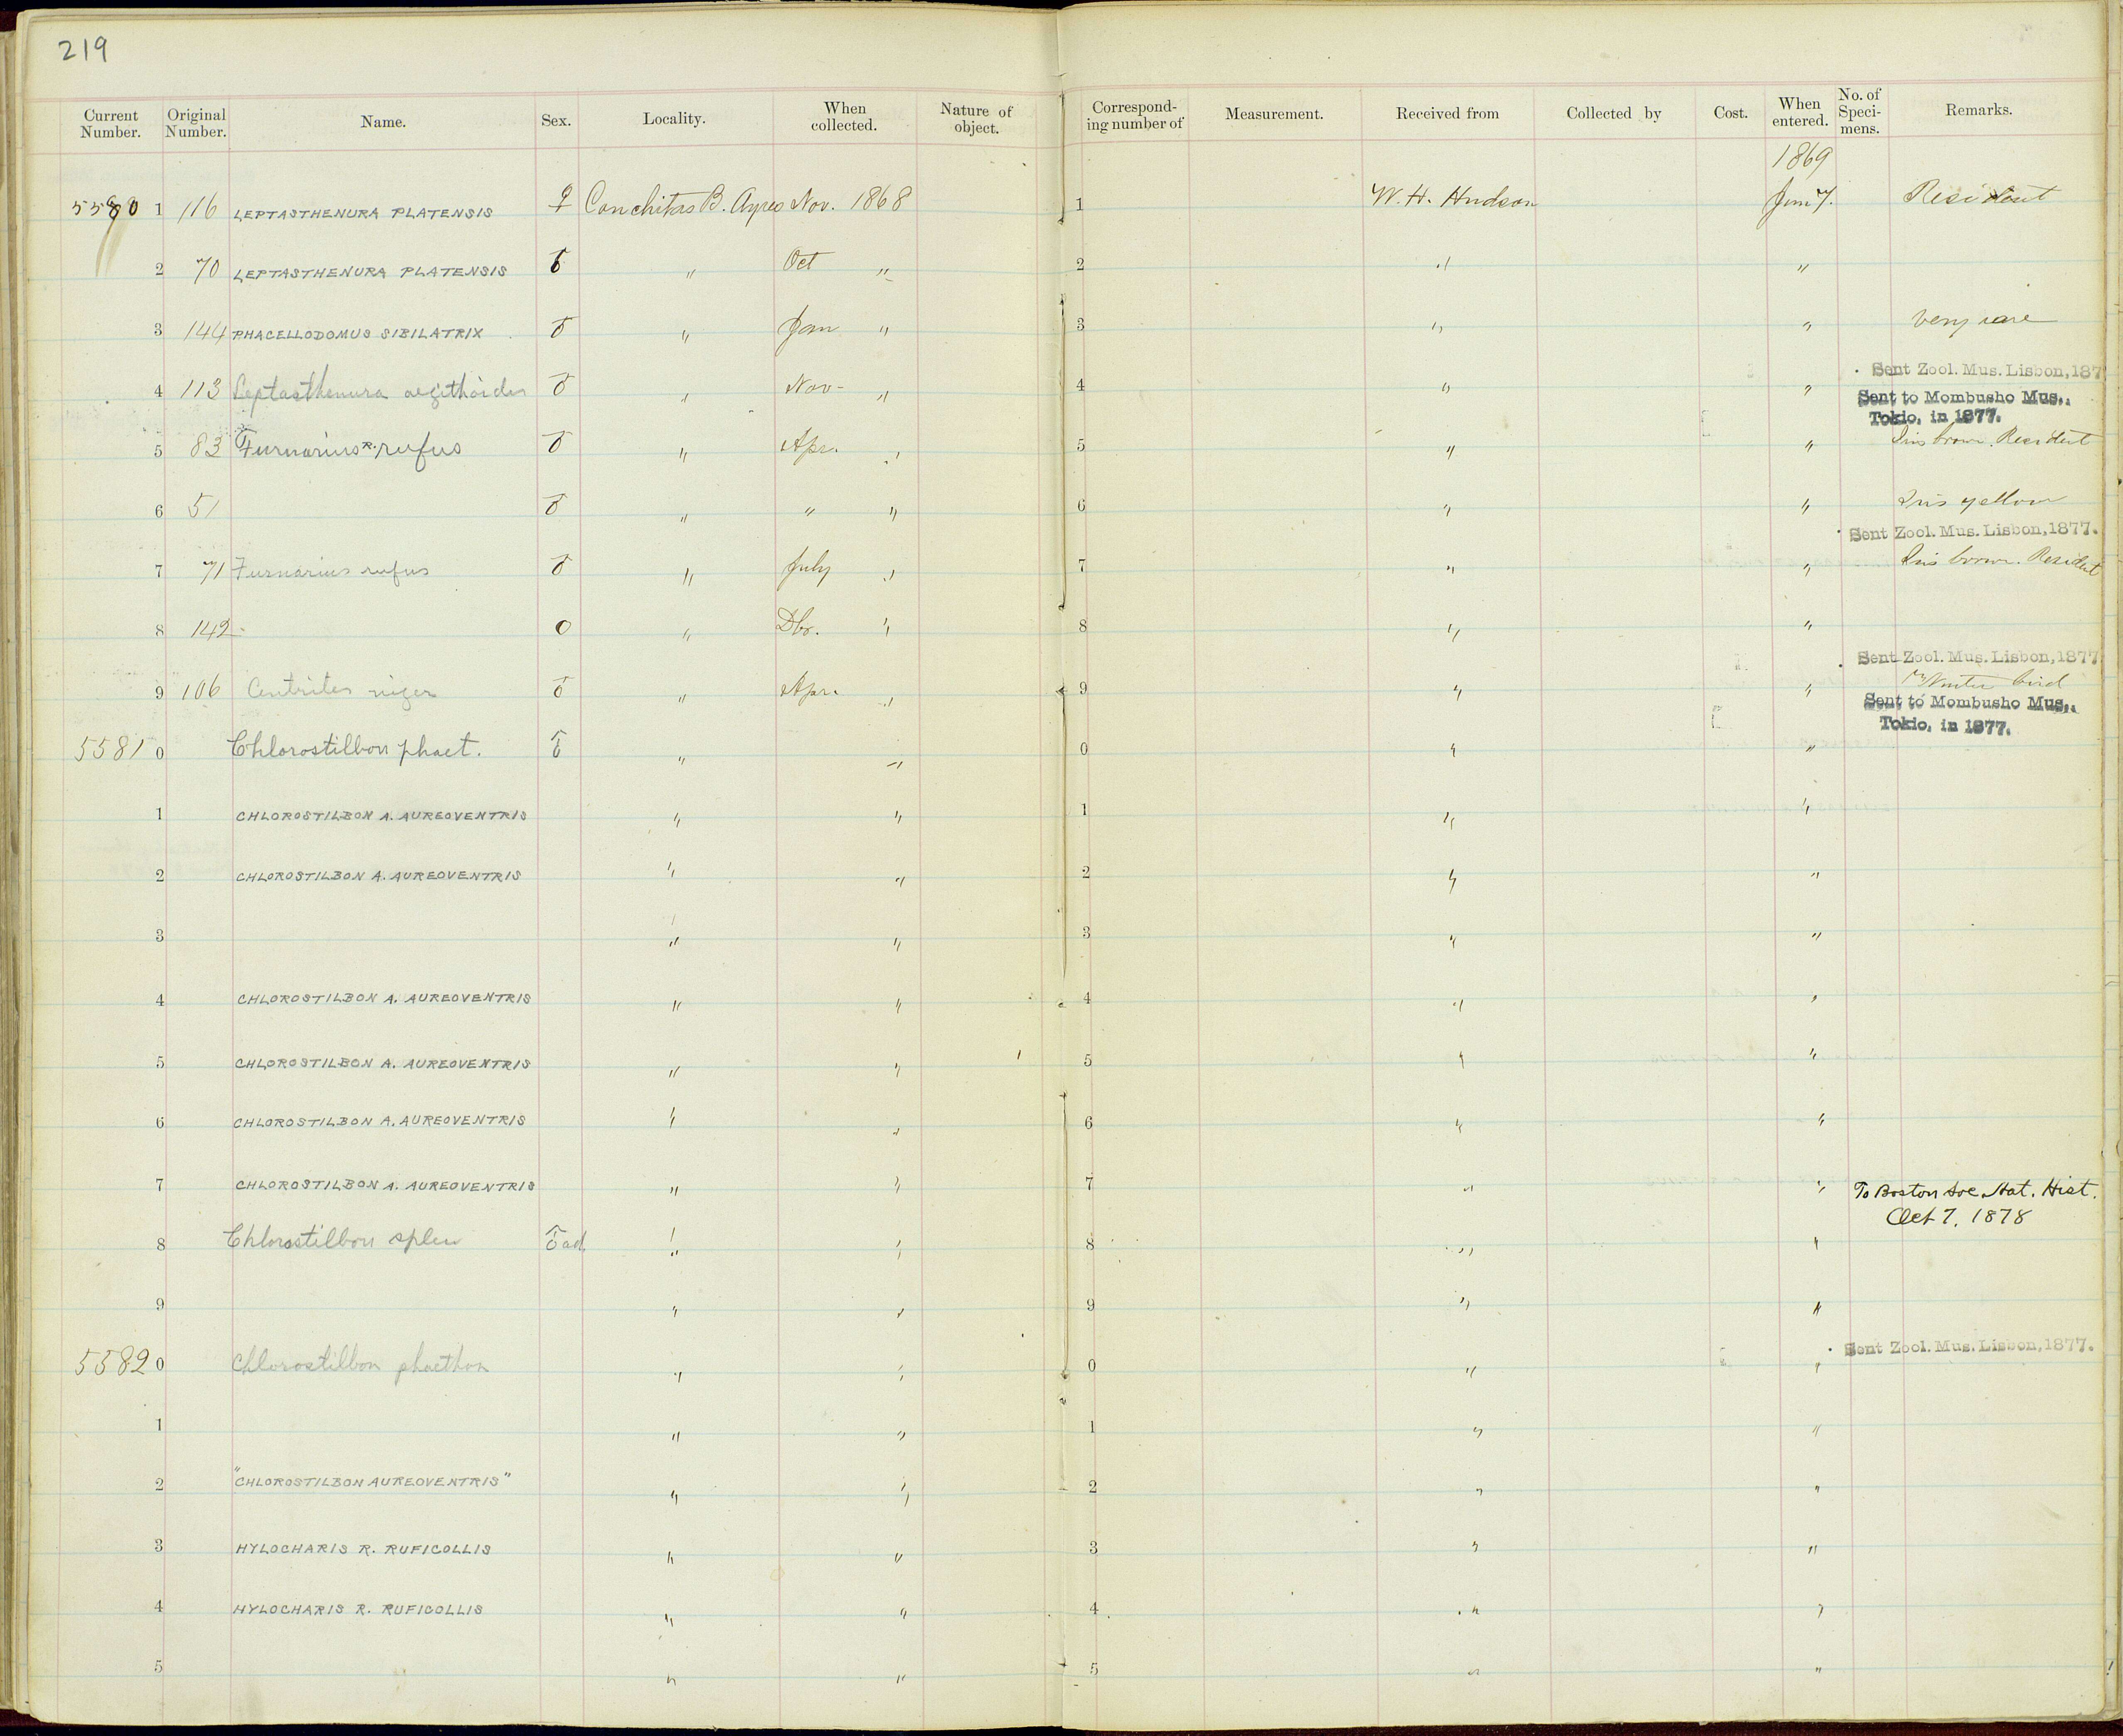 219
Current Number. Original Number. Name. Sex. Locality. When collected. Nature of object. Corresponding number of Measurement. Received from Collected by Cost. When entered. No. of Specimens. Remarks.
1869
5580 1 116 LEPTASTHENURA PLATENSIS ♀ Conchitas B. Ayres Nov. 1868 1 W. H. Hudson Jun 7. Resident
2 70 LEPTASTHENURA PLATENSIS ♂ " Oct " 2 " "
3 144 PHACELLODOMUS SIBILATRIX ♂ " Jan " 3 " " Very rare
Sent Zool. Mus. Lisbon, 187
4 113 Leptasthenura aegithoides ♂ " Nov- " 4 " " Sent to Mombusho Mus., Tokio, in 1877.
5 83 Furnarius R. rufus ♂ " Apr. " 5 " " Iris brown. Resident
6 51 ♂ " " " 6 " " Iris yellow
Sent Zool. Mus. Lisbon, 1877.
7 71 Furnarius rufus ♂ " July " 7 " " Iris brown. Resident
8 142 O " Dbr. " 8 " "
Sent Zool. Mus. Lisbon, 1877
9 106 Centrites niger ♂ " Apr. " 9 " " Winter bird
Sent to Mombusho Mus., Tokio, in 1877.
5581 0 Chlorostilbon phaet. ♂ " " 0 " "
1 CHLOROSTILBON A. AUREOVENTRIS " " 1 " "
2 CHLOROSTILBON A. AUREOVENTRIS " " 2 " "
3 " " 3 " "
4 CHLOROSTILBON A. AUREOVENTRIS " " 4 " "
5 CHLOROSTILBON A. AUREOVENTRIS " " 5 " "
6 CHLOROSTILBON A. AUREOVENTRIS " " 6 " "
7 CHLOROSTILBON A. AUREOVENTRIS " " 7 " " To Boston Soc. Nat. Hist.
Oct 7, 1878
8 Chlorostilbon splen ♂ ad. " " 8 " "
9 " " 9 " "
5582 0 Chlorostilbon phaethon " " 0 " " Sent Zool. Mus. Lisbon, 1877.
1 " " 1 " "
2 "CHLOROSTILBON AUREOVENTRIS" " " 2 " "
3 HYLOCHARIS R. RUFICOLLIS " " 3 " "
4 HYLOCHARIS R. RUFICOLLIS " " 4 " "
5 " " 5 " "